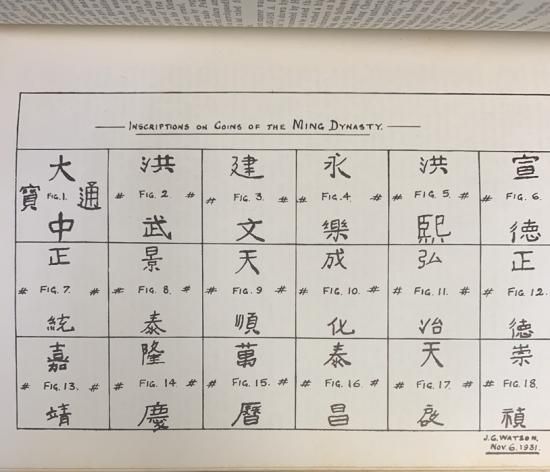 INSCRIPTIONS ON COINS OF THE MING DYNASTY.
大 洪 建 永 洪 宣
寶 FIG. 1. 通 # FIG. 2. # # FIG. 3. # # FIG. 4. # # FIG. 5. # # FIG. 6.
中 武 文 樂 熙 德
正 景 天 成 弘 正
# FIG. 7. # # FIG. 8. # # FIG. 9 # # FIG. 10. # # FIG. 11. # # FIG. 12.
統 泰 順 化 治 德
嘉 隆 萬 泰 天 崇
# FIG. 13. # # FIG. 14 # # FIG. 15. # # FIG. 16. # # FIG. 17. # # FIG. 18.
靖 慶 曆 昌 啟 禎
J. G. WATSON,
NOV. 6. 1931.